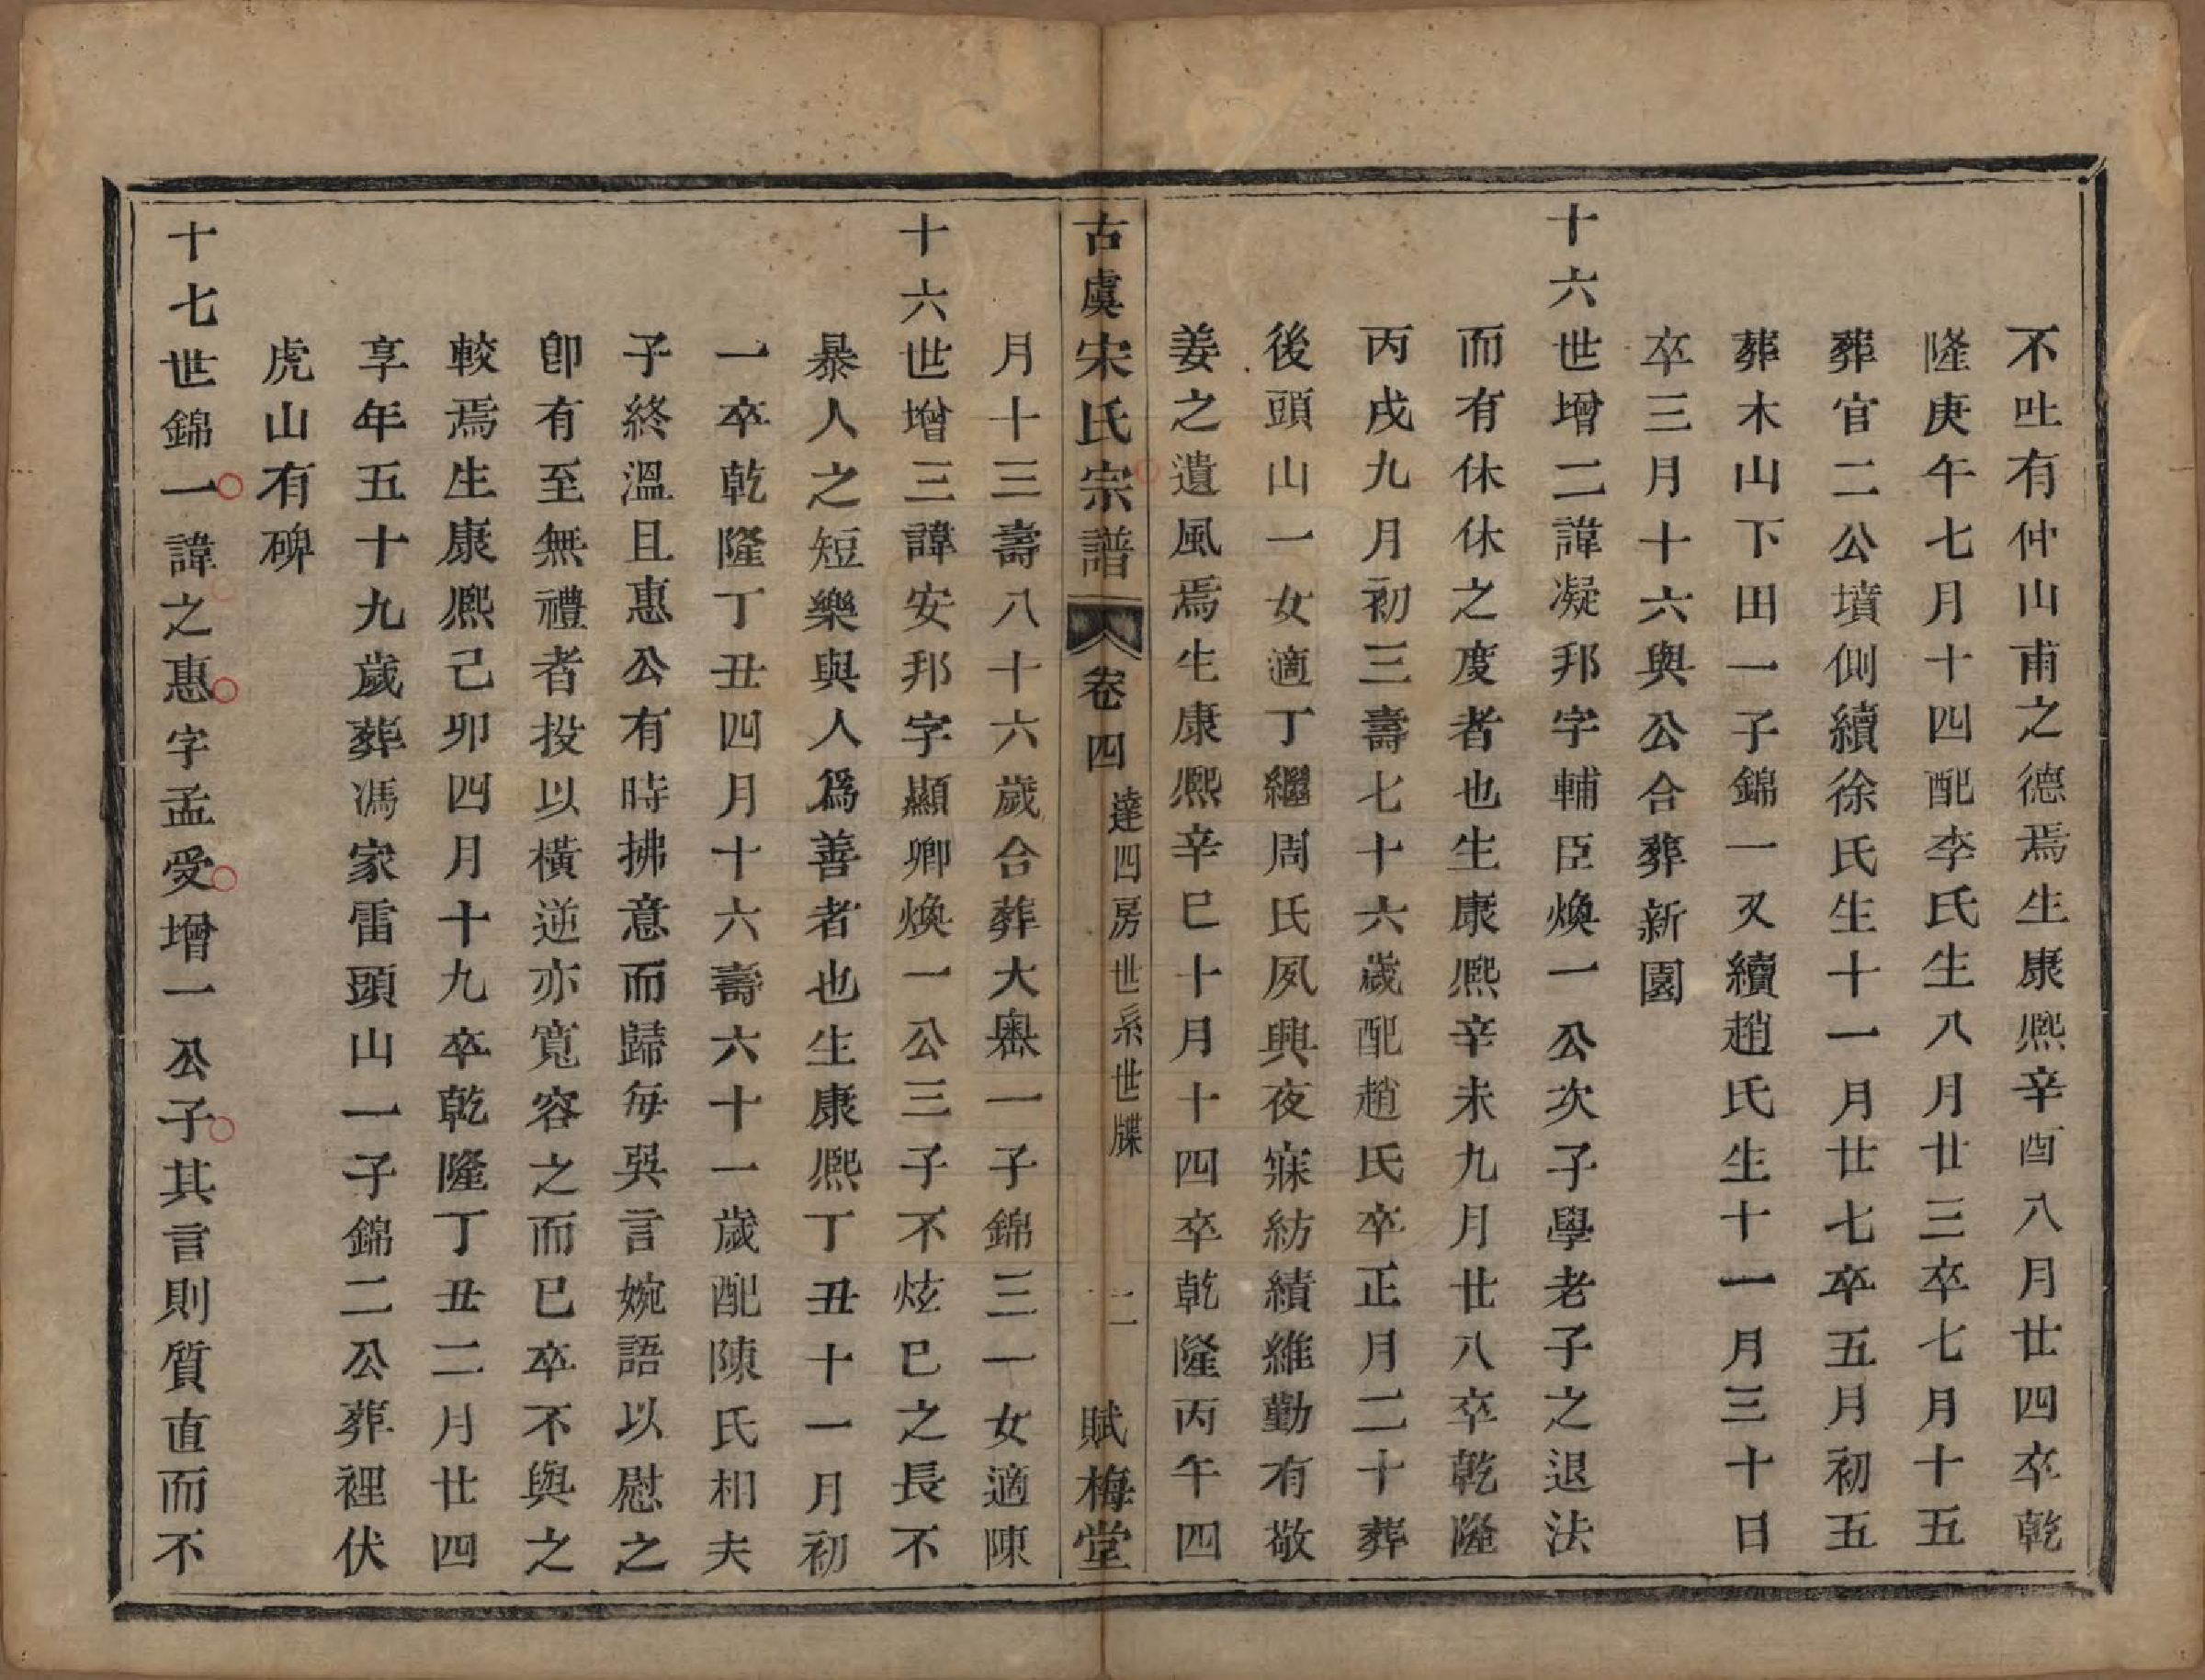 不吐有仲山甫之德焉生康熙辛酉八月廿四卒乾
隆庚午七月十四配李氏生八月廿三卒七月十五
葬官二公墳側續徐氏生十一月廿七卒五月初五
葬木山下田一子錦一又續趙氏生十一月三十日
卒三月十六與公合葬新園
十六世增二諱凝邦字輔臣煥一公次子學老子之退法
而有休休之度者也生康熙辛未九月廿八卒乾隆
丙戌九月初三壽七十六歲配趙氏卒正月二十葬
後頭山一女適丁繼周氏夙興夜寐紡績維勤有敬
姜之遺風焉生康熙辛巳十月十四卒乾隆丙午四
古虞宋氏宗譜 卷四 達四房世系世牒 二 賦梅堂
月十三壽八十六歲合葬大奧一子錦三一女適陳
十六世增三諱安邦字顯卿煥一公三子不炫已之長不
暴人之短樂與人爲善者也生康熙丁丑十一月初
一卒乾隆丁丑四月十六壽六十一歲配陳氏相夫
子終溫且惠公有時拂意而歸每吳言婉語以慰之
卽有至無禮者投以橫逆亦寬容之而已卒不與之
較焉生康熙己卯四月十九卒乾隆丁丑二月廿四
享年五十九歲葬馮家雷頭山一子錦二公葬裡伏
虎山有碑
十七世錦一諱之惠字孟受增一公子其言則質直而不